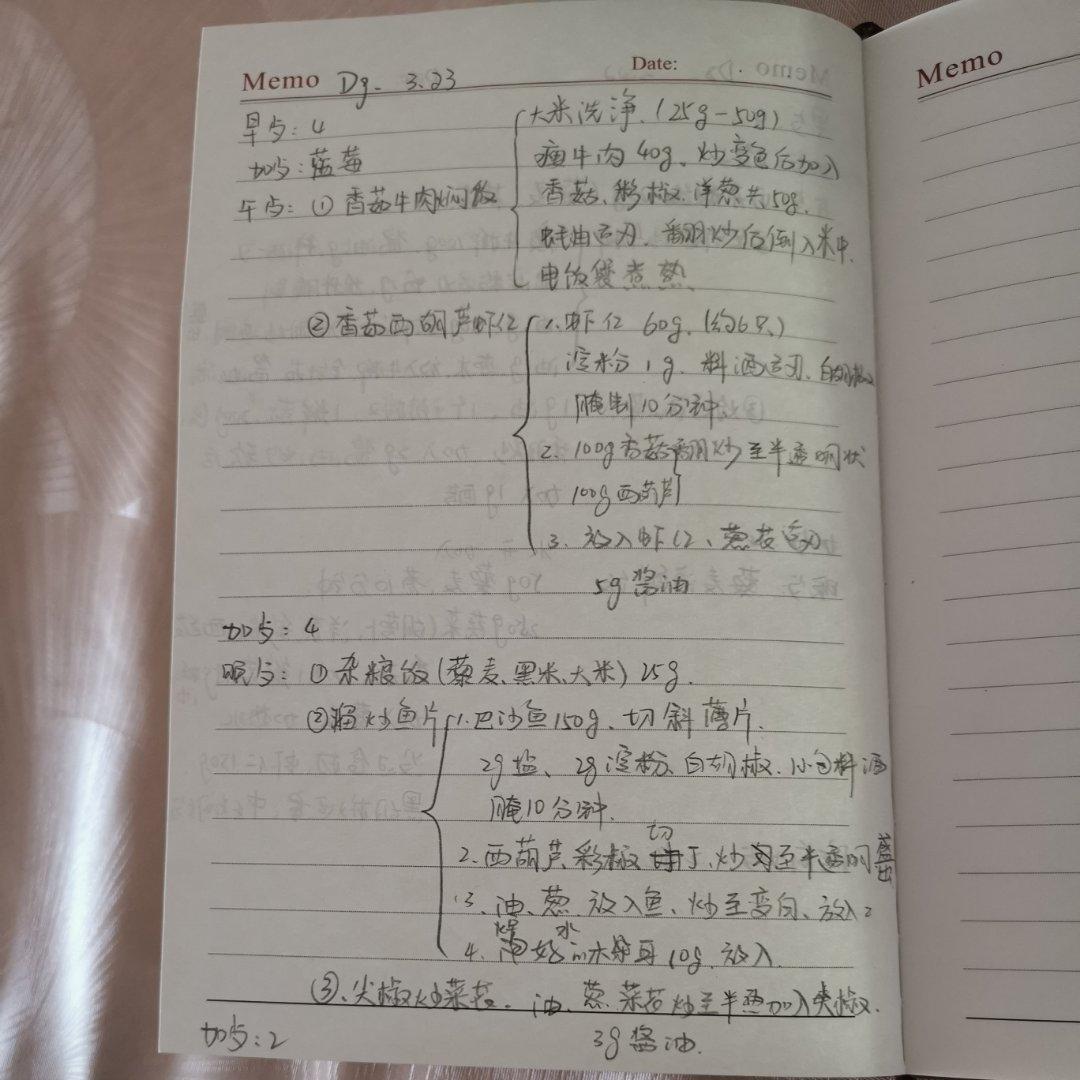 Memo D9. 3.23 Date:
Memo
早歺: 4
加歺: 蓝莓
午歺: ① 香菇牛肉焖饭
大米洗净. (25g-50g)
瘦牛肉 40g、炒变色后加入
香菇、彩椒、洋葱共50g.
蚝油适刃. 翻炒后倒入米中.
电饭煲煮熟
② 香菇西胡芦虾仁
1. 虾仁 60g. (约6只)
淀粉 1g. 料酒适刃、白胡椒
腌制10分钟
2. 100g香菇翻炒至半透明状
100g西葫芦
3. 放入虾仁、葱花适刃
5g 酱油
加歺: 4
晚歺: ① 杂粮饭(藜麦、黑米、大米) 25g.
② 熘炒鱼片
1. 巴沙鱼150g、切斜薄片.
2g 盐、2g 淀粉、白胡椒. 料酒
腌10分钟.
2. 西葫芦、彩椒切丁、炒至半透明盛出
3. 油、葱、放入鱼、炒至变白、放入2
4. 焯好水木耳10g、放入.
③、尖椒炒菜花. 油、葱、菜花炒至半熟加入尖椒.
3g 酱油.
加歺: 2